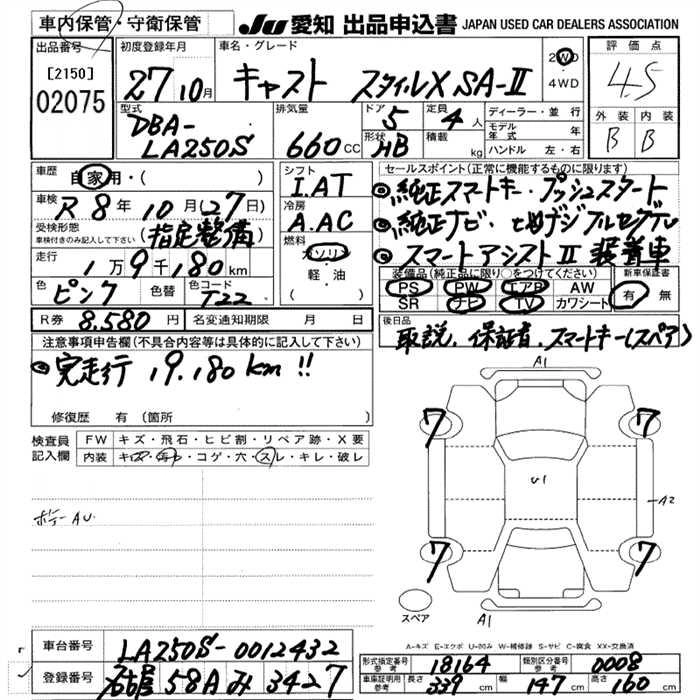 車内保管・守衛保管
JU 愛知 出品申込書 JAPAN USED CAR DEALERS ASSOCIATION
出品番号
[2150]
02075
初度登録年月
27 10月
車名・グレード
キャスト スタイルX SA-II
2WD
・4WD
評価点
4.5
外装 内装
B B
型式
DBA-
LA250S
排気量
660 CC
ドア
5
定員
4 人
形状
HB
積載
kg
ディーラー・並行
モデル年式 年
ハンドル 左・右
車歴
自家用・( )
車検
R 8年 10月(27日)
受検形態
車検付きのみ記入して下さい
(指定整備)
走行
1万9千180 km
色
ピンク
色替
色コード
T22
シフト
I.AT
冷房
A.AC
燃料
ガソリン
・軽・油
セールスポイント(正常に機能するものに限ります)
純正スマートキー・プッシュスタート
純正ナビ・フルセグTV
スマートアシストII 装着車
装備品(純正品に限り○をつけてください)
PS PW エアB AW
SR ナビ TV カワシート
新車保証書
有 無
R券 8.580 円
名変通知期限 月 日
後日品
取説、保証書、スマートキー(スペア)
注意事項申告欄(不具合内容等は具体的に記入して下さい)
完走行 19.180km!!
修復歴 有 (箇所
検査員
記入欄
FW キズ・飛石・ヒビ割・リペア跡・X要
内装 キズ・汚レ・コゲ・穴・スレ・キレ・破レ
ボデーAU
A1
7 7
U1
A2
7 7
スペア
A1
A-キズ E-エクボ U-凹み W-補修跡 S-サビ C-腐食 XX-交換済
車台番号 LA250S-0012432
登録番号 名古屋 58A み 3427
形式指定番号
参考
18164
類別区分番号
参考
0008
車庫証明用
参考
長さ 339 cm 幅 147 cm 高さ 160 cm